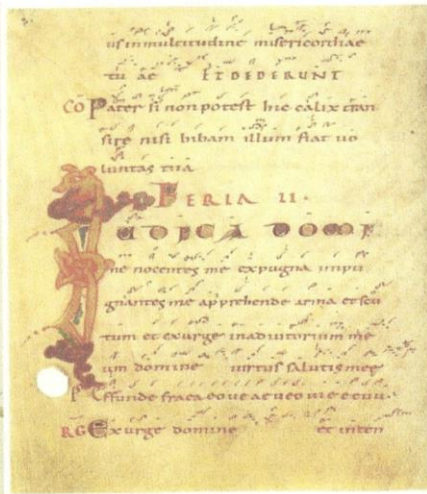 us in multitudine misericordiae
tu ae ET DEDERUNT
CO Pater si non potest hic calix tran
sire nisi bibam illum fiat uo
luntas tua
FERIA II.
IUDICA DOMI
ne nocentes me expugna impu
gnantes me apprehende arma et scu
tum et exurge in adiutorium me
um domine uirtus salutis meę
PS Effunde
RG Exurge domine et inten